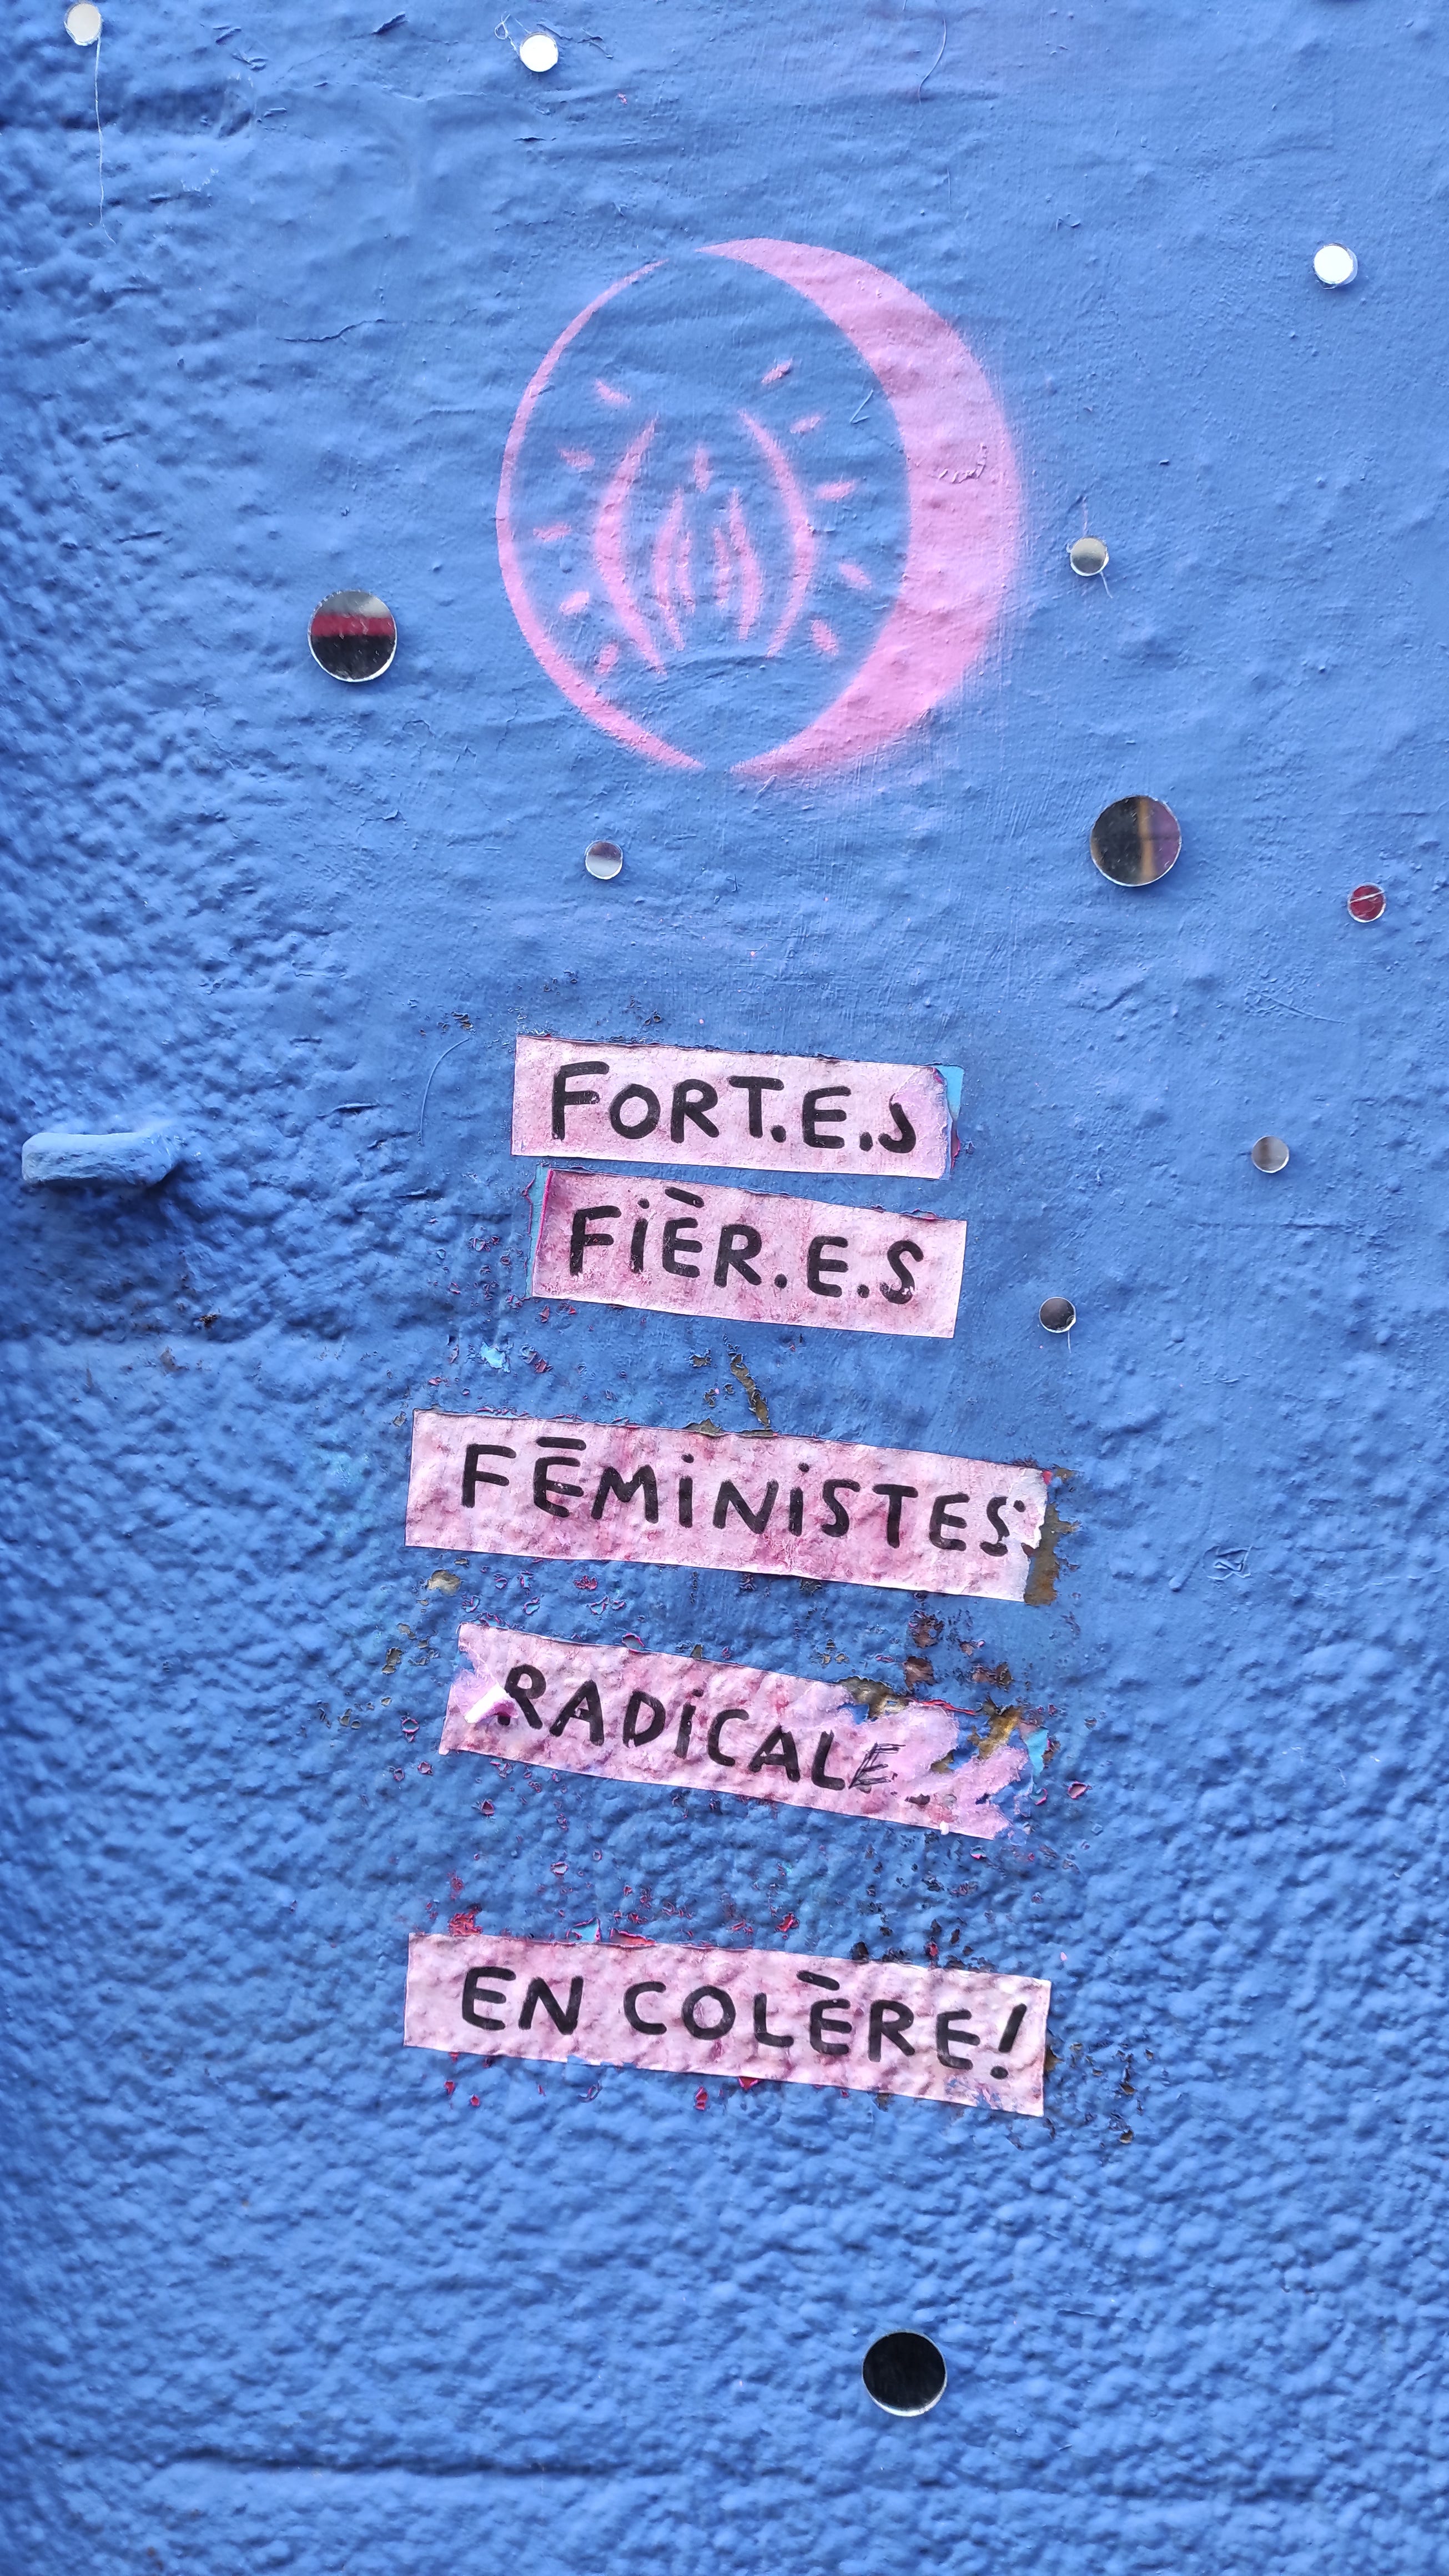 FORT.E.S
FIÈR.E.S
FÉMINISTES
RADICALE
EN COLÈRE!